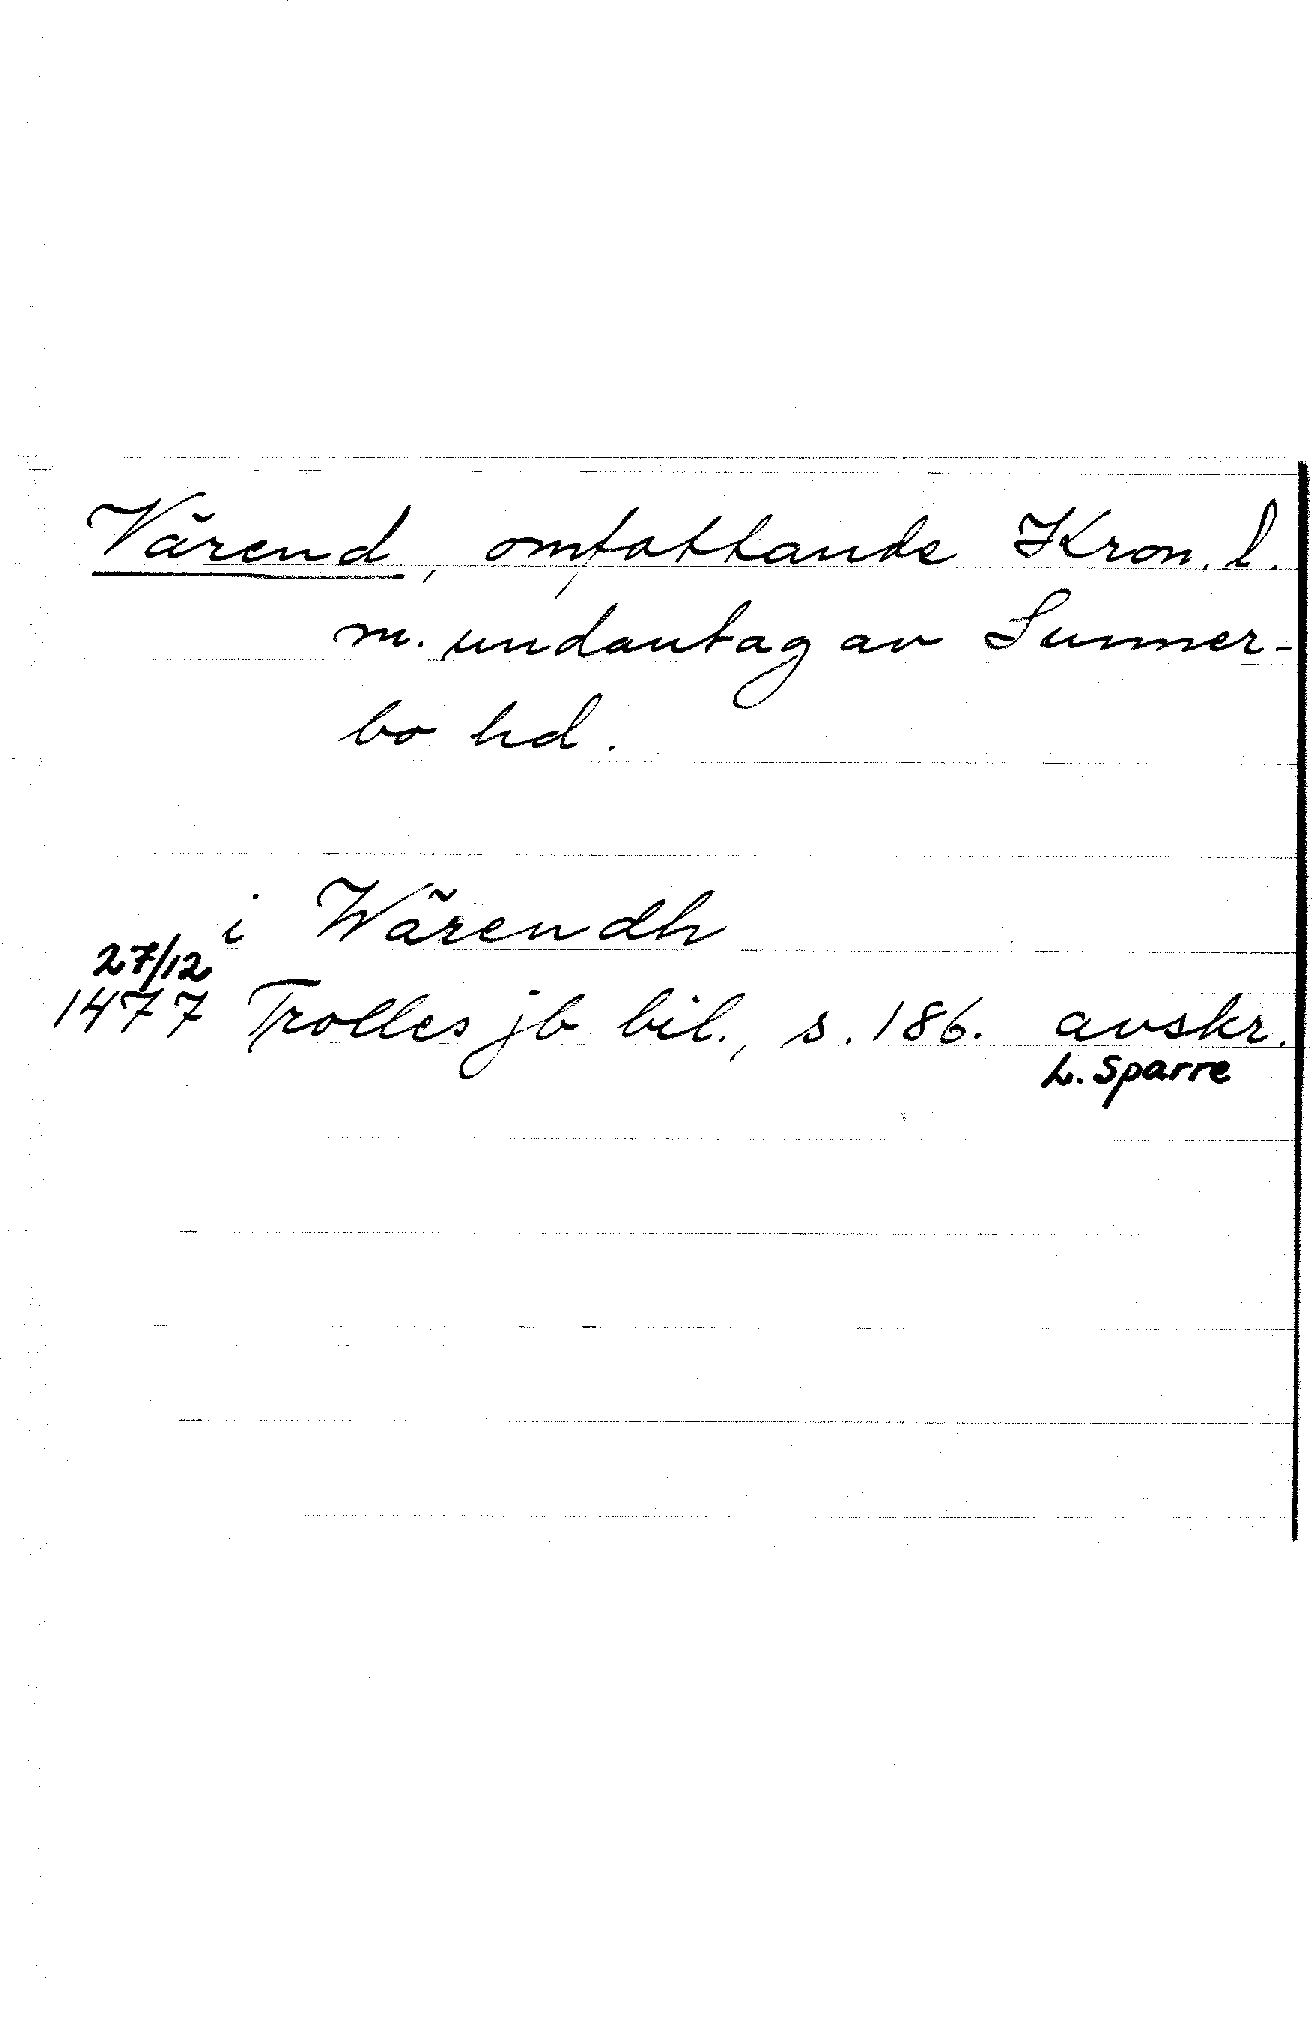 Värend, omfattande Kron. l.
m. undantag av Sunner-
bo hd.
i Wärendh
27/12
1477 Trolles jb bil., s. 186. avskr.
L. Sparre